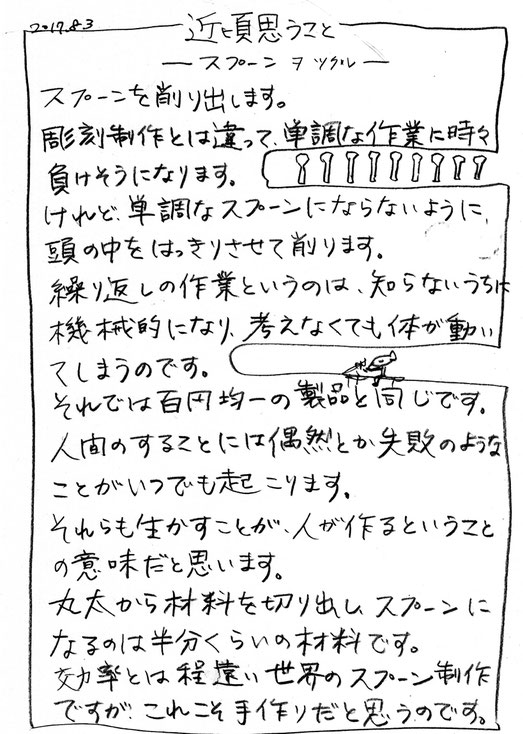 2017.8.3
近頃思うこと
―スプーンヲツクル―
スプーンを削り出します。
彫刻制作とは違って、単調な作業に時々
負けそうになります。
けれど、単調なスプーンにならないように、
頭の中をはっきりさせて削ります。
繰り返しの作業というのは、知らないうちに
機械的になり、考えなくても体が動い
てしまうのです。
それでは百円均一の製品と同じです。
人間のすることには偶然とか失敗のような
ことがいつでも起こります。
それらも生かすことが、人が作るということ
の意味だと思います。
丸太から材料を切り出し、スプーンに
なるのは半分くらいの材料です。
効率とは程遠い世界のスプーン制作
ですが、これこそ手作りだと思うのです。